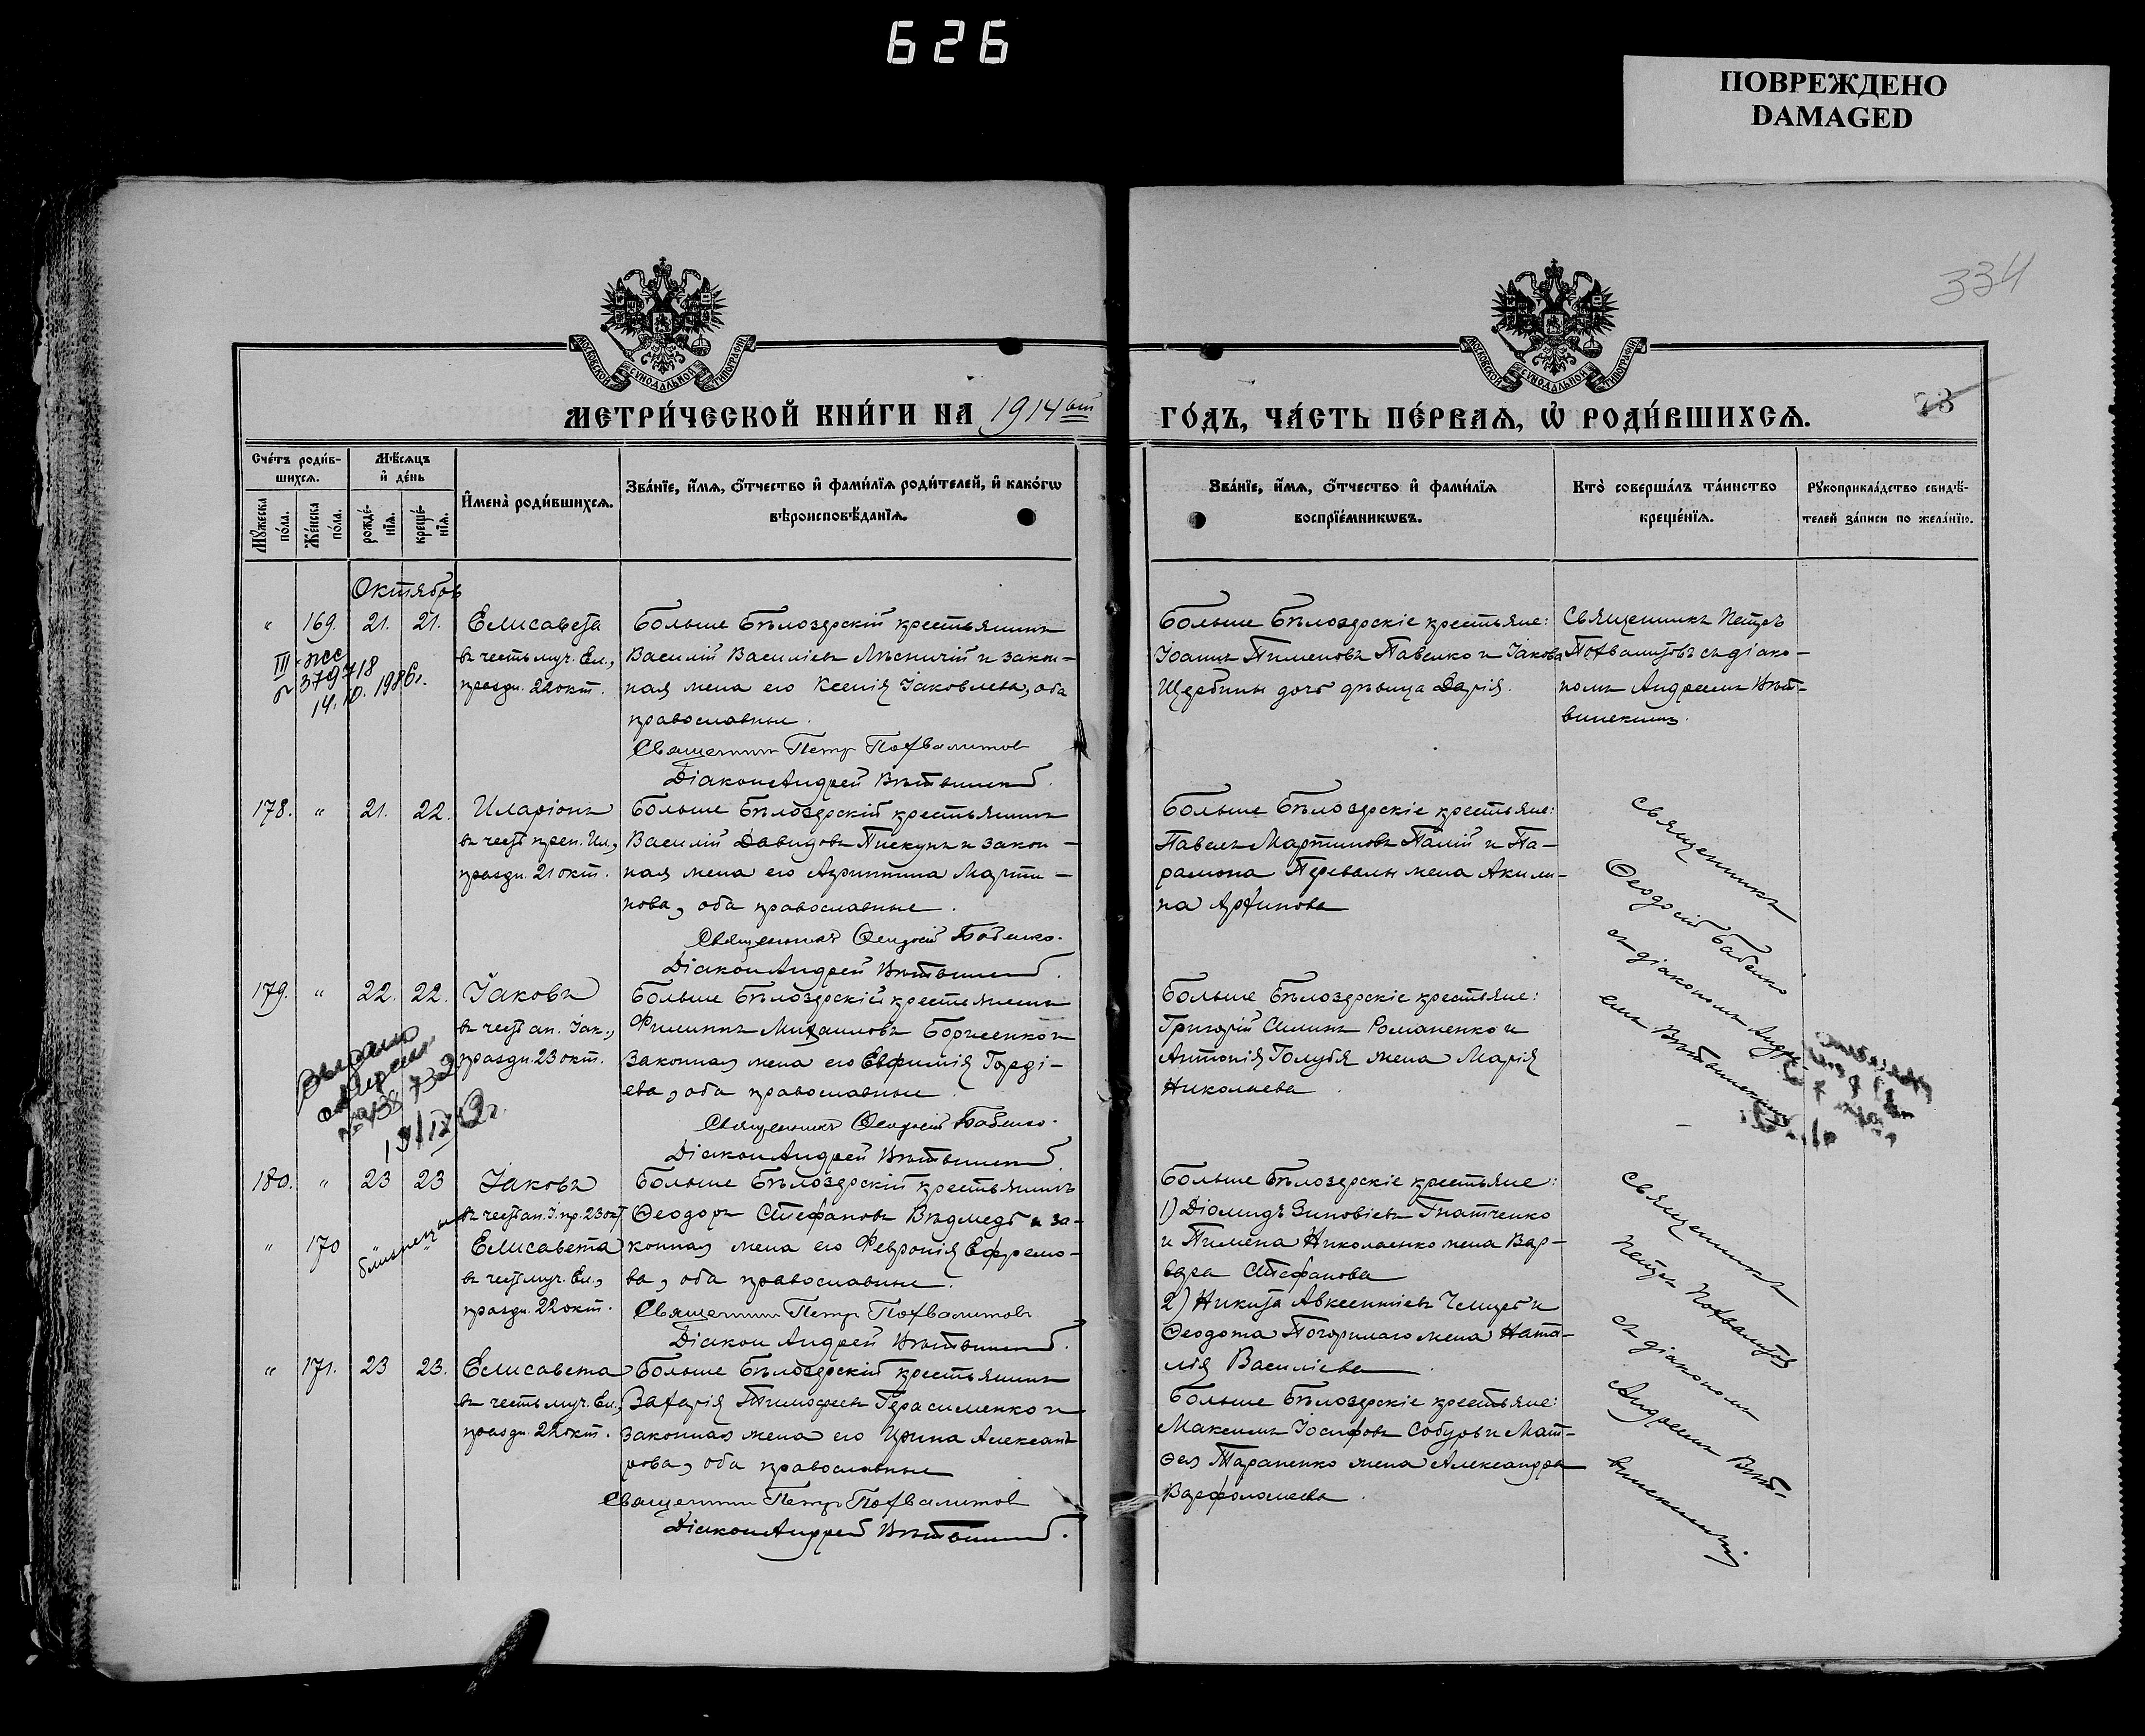 626
ПОВРЕЖДЕНО
DAMAGED
334
МОСКОВСКОЙ СУНОДАЛЬНОЙ ТИПОГРАФІИ
МОСКОВСКОЙ СУНОДАЛЬНОЙ ТИПОГРАФІИ
МЕТРИ́ЧЕСКОЙ КНИ́ГИ НА 1914 ый
ГО́ДЪ, ЧА́СТЬ ПЕ́РВАѦ, Ѡ҆ РОДИ́ВШИХСѦ.
73
Сче́тъ роди́в-
шихсѧ.
Мѣ́сѧцъ
и҆ де́нь
Мꙋ́жеска
по́ла.
Же́нска
по́ла.
рожде́-
нїѧ.
креще́-
нїѧ.
И҆мена̀ роди́вшихсѧ.
Зва́нїе, и҆́мѧ, ѻ҆́тчество и҆ фами́лїѧ роди́телей, и҆ како́гѡ
вѣроисповѣ́данїѧ.
Зва́нїе, и҆́мѧ, ѻ҆́тчество и҆ фами́лїѧ
воспрїе́мникѡвъ.
Кто̀ соверша́лъ та́инство
креще́нїѧ.
Рꙋкоприкла́дство свидѣ́-
телей за́писи по жела́нїю.
Октябрь
" 169. 21. 21. Елисавета
въ честь муч. Ел.,
праздн. 22 окт.
III-жс
№ 379718
14.10.1986г.
Больше Бѣлозерскій крестьянинъ
Василій Василіевъ Лѣсничій и закон-
ная жена его Ксенія Іаковлева, оба
православные.
Священник Петр Похвалитов
Діакон Андрей Вѣтвинскій.
Больше Бѣлозерскіе крестьяне:
Іоаннъ Пименовъ Павелко и Іакова
Щербины дочь дѣвица Дарія.
Священникъ Петръ
Похвалитовъ съ діако-
номъ Андреемъ Вѣт-
винскимъ.
178. " 21. 22. Иларіонъ
въ честь преп. Ил.,
праздн. 21 окт.
Больше Бѣлозерскій крестьянинъ
Василій Давидовъ Пискунъ и закон-
ная жена его Агриппина Марти-
нова, оба православные.
Священникъ Ѳеодосій Бабенко.
Діакон Андрей Вѣтвинскій.
Больше Бѣлозерскіе крестьяне:
Павелъ Мартиновъ Палій и Па-
рамона Перевалы жена Акили-
на Архипова
Священникъ
Ѳеодосій Бабенко
съ діакономъ Андре-
емъ Вѣтвинскимъ
179. " 22. 22. Іаковъ
въ честь ап. Іак.,
праздн. 23 окт.
Больше Бѣлозерскій крестьянинъ
Филиппъ Михаиловъ Борисенко и
законная жена его Евфимія Горді-
ева, оба православные.
Священникъ Ѳеодосій Бабенко.
Діакон Андрей Вѣтвинскій.
Больше Бѣлозерскіе крестьяне:
Григорій Силинъ Романенко и
Антонія Голубя жена Марія
Николаева
180. " 23 23 Іаковъ
въ честь ап. І. пр. 23 окт
" 170 близнецы " Елисавета
въ честь муч. Ел.,
праздн. 22 окт.
Больше Бѣлозерскій крестьянинъ
Ѳеодоръ Стефановъ Вѣдмедь и за-
конная жена его Февронія Ефремо-
ва, оба православные.
Священник Петр Похвалитовъ
Діакон Андрей Вѣтвинскій.
Больше Бѣлозерскіе крестьяне:
1) Діомидъ Зиновіевъ Гнатченко
и Пимена Николаенко жена Вар-
вара Стефанова
2) Никита Авксентіевъ и
Ѳеодота Погорилаго жена Ната-
лія Василіева
Священникъ
Петръ Похвалитовъ
съ діакономъ
Андреемъ Вѣт-
винскимъ
" 171. 23 23. Елисавета
въ честь муч. Ел.,
праздн. 22 окт.
Больше Бѣлозерскій крестьянинъ
Захарія Тимофеевъ Герасименко и
законная жена его Ирина Александ-
рова, оба православные
Священник Петр Похвалитов
Діакон Андрей Вѣтвинскій.
Больше Бѣлозерскіе крестьяне:
Максимъ Іосифовъ Собуръ и Мат-
ѳея Тараненко жена Александра
Варфоломеева.